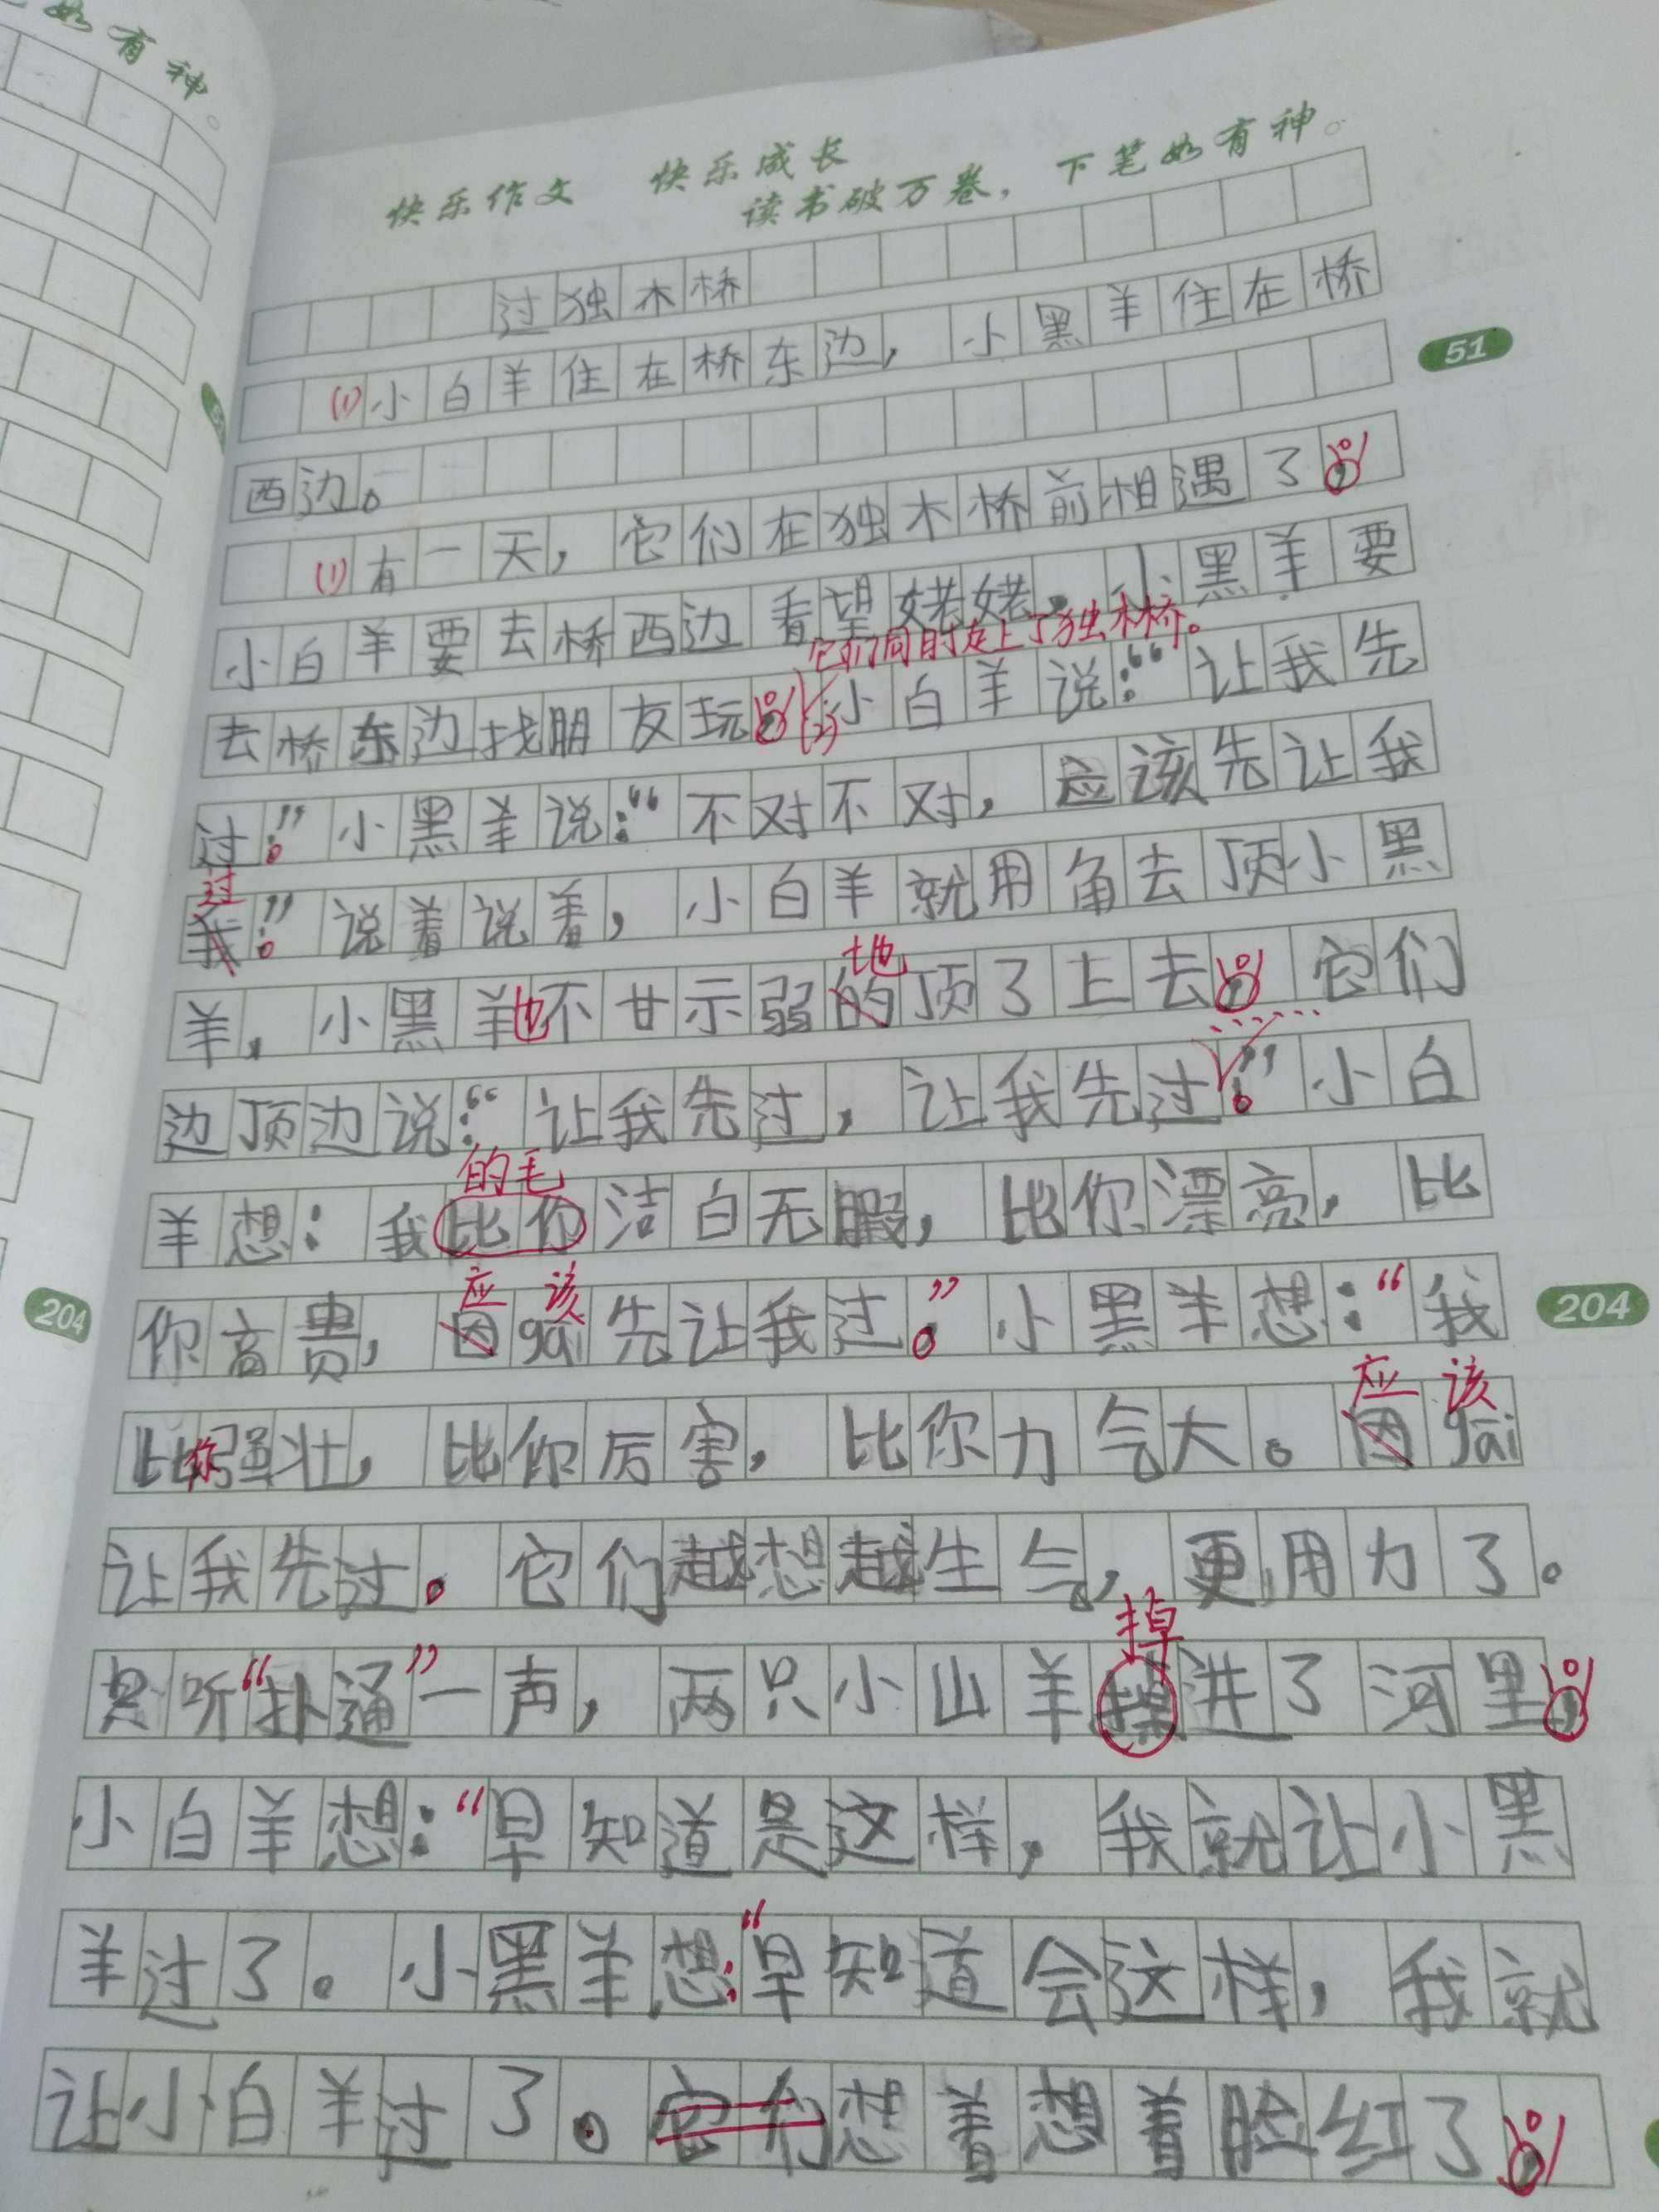 如有神。
快乐作文 快乐成长
读书破万卷，下笔如有神。
过独木桥
(1)小白羊住在桥东边，小黑羊住在桥
51
西边。
(1)有一天，它们在独木桥前相遇了。
小白羊要去桥西边看望姥姥，小黑羊要
它们同时走上了独木桥。
去桥东边找朋友玩。(2)小白羊说：“让我先
过！”小黑羊说：“不对不对，应该先让我
过
我！”说着说着，小白羊就用角去顶小黑
地
羊，小黑羊也不甘示弱的顶了上去。它们
边顶边说：“让我先过，让我先过！”小白
的毛
羊想：我比你洁白无暇，比你漂亮，比
应该
你高贵，因gāi先让我过。”小黑羊想：“我
204
204
应该
比你强壮，比你厉害，比你力气大。因gāi
让我先过。它们越想越生气，更用力了。
掉
只听“扑通”一声，两只小山羊进了河里。
小白羊想：“早知道是这样，我就让小黑
羊过了。小黑羊想：“早知道会这样，我就
让小白羊过了。它们想着想着脸红了。